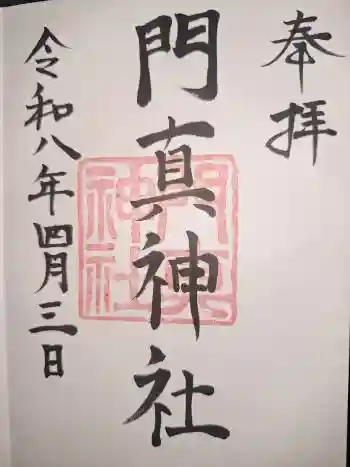 奉拝
門真神社
門真
神社
令和八年四月三日